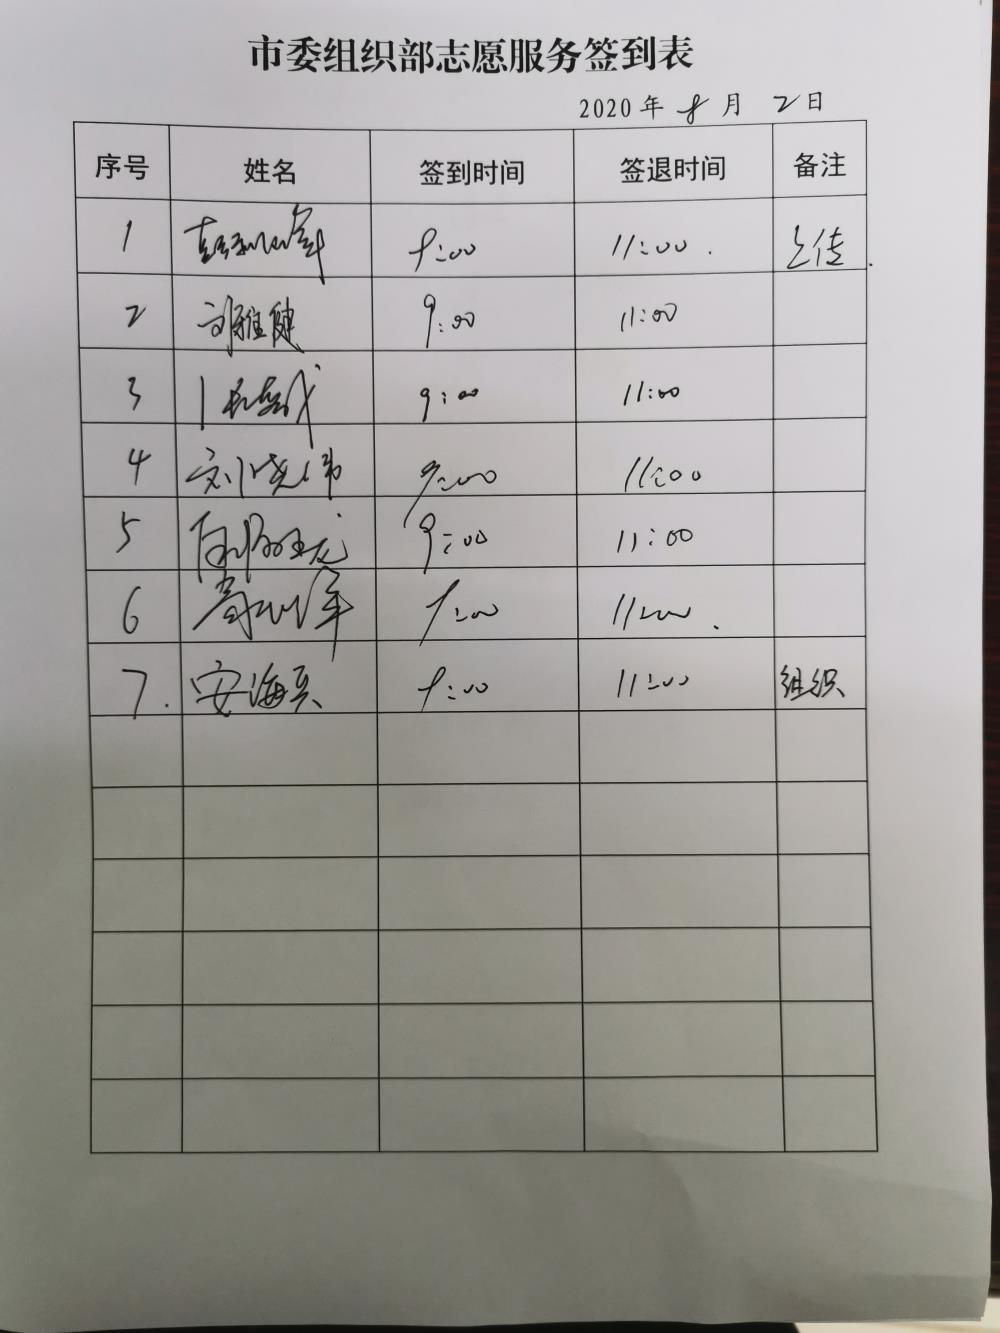 市委组织部志愿服务签到表
2020年8月2日
序号 姓名 签到时间 签退时间 备注
1 9:00 11:00. 上传.
2 刘雅健 9:00 11:00
3 9:00 11:00
4 刘晓伟 9:00 11:00
5 9:00 11:00
6 9:00 11:00.
7. 安海兵 9:00 11:00 组织